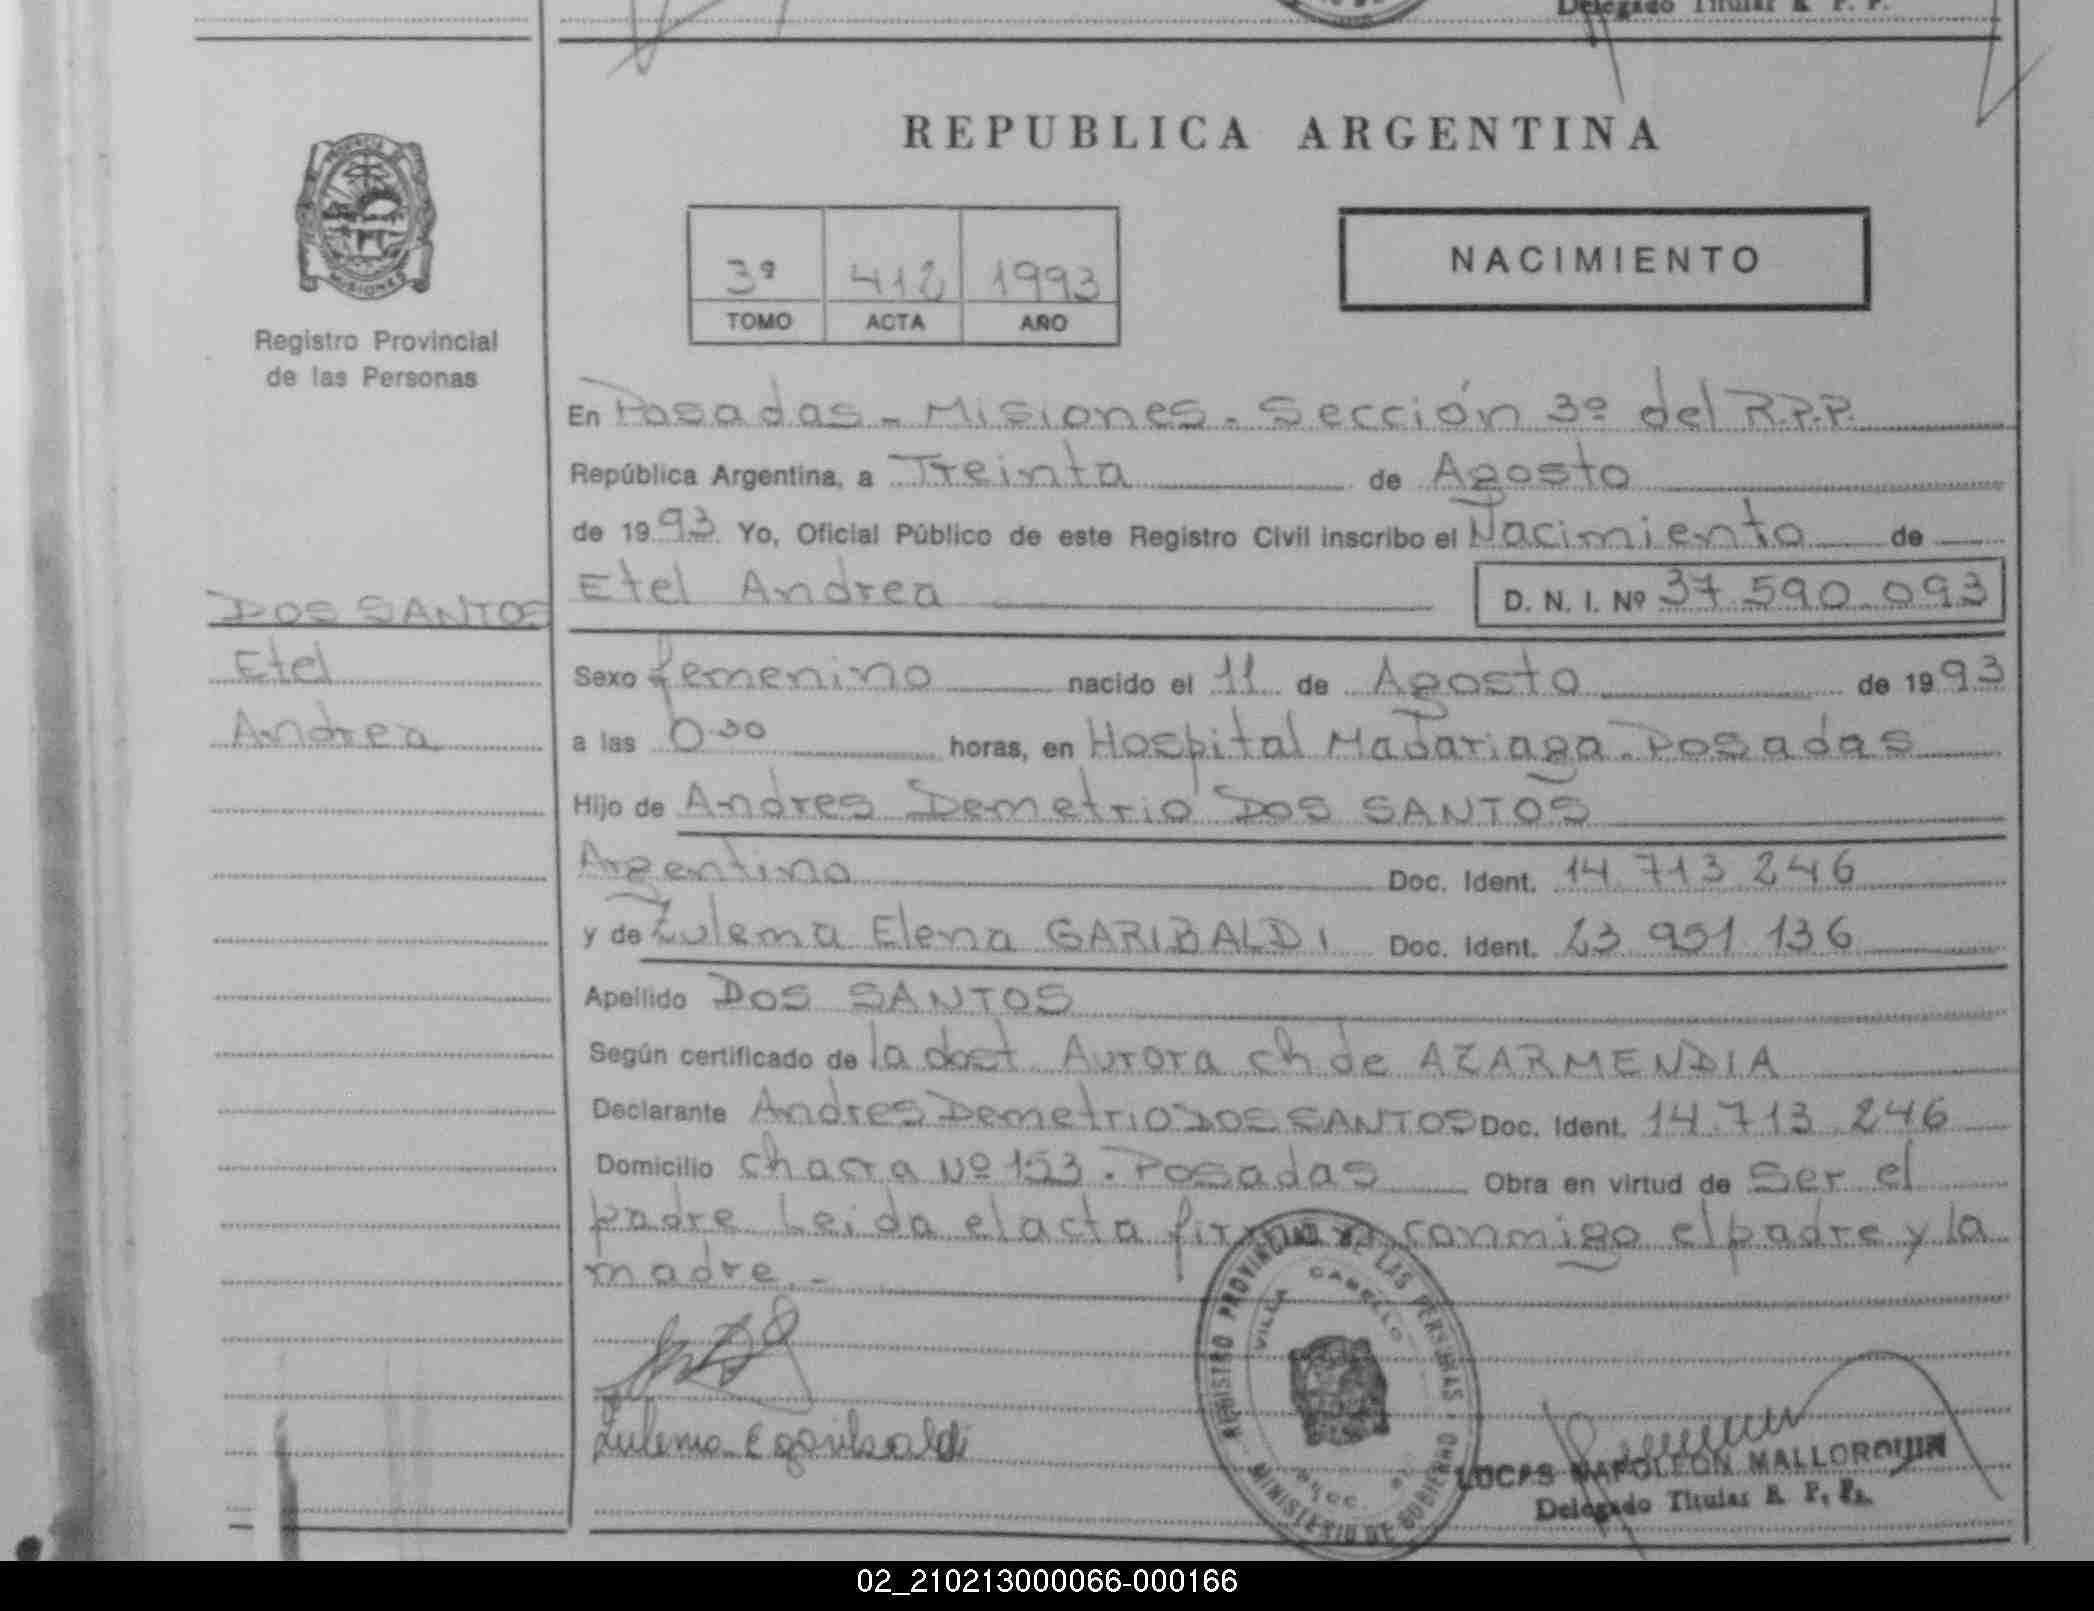 Delegado Titular R. P. P.
REPUBLICA ARGENTINA
PROVINCIA DE MISIONES
Registro Provincial
de las Personas
3º 412 1993
TOMO ACTA AÑO
NACIMIENTO
En Posadas - Misiones - Sección 3º del R.P.P.
República Argentina, a Treinta de Agosto
de 1993 Yo, Oficial Público de este Registro Civil inscribo el Nacimiento de
Etel Andrea D. N. I. Nº 37.590.093
DOS SANTOS
Etel
Andrea
Sexo femenino nacido el 11 de Agosto de 1993
a las 0.30 horas, en Hospital Madariaga - Posadas
Hijo de Andres Demetrio DOS SANTOS
Argentino Doc. Ident. 14.713.246
y de Zulema Elena GARIBALDI Doc. Ident. 23.951.136
Apellido DOS SANTOS
Según certificado de la dost. Aurora ch de AZARMENDIA
Declarante Andres Demetrio DOS SANTOS Doc. Ident. 14.713.246
Domicilio chacra Nº 153. Posadas Obra en virtud de Ser el
padre Leida el acta firman conmigo el padre y la
madre.-
Zulema E garibaldi
REGISTRO PROVINCIAL DE LAS PERSONAS
VILLA CABELLO
MINISTERIO DE GOBIERNO
LUCAS NAPOLEON MALLORQUIN
Delegado Titular R. P. P.
02_210213000066-000166